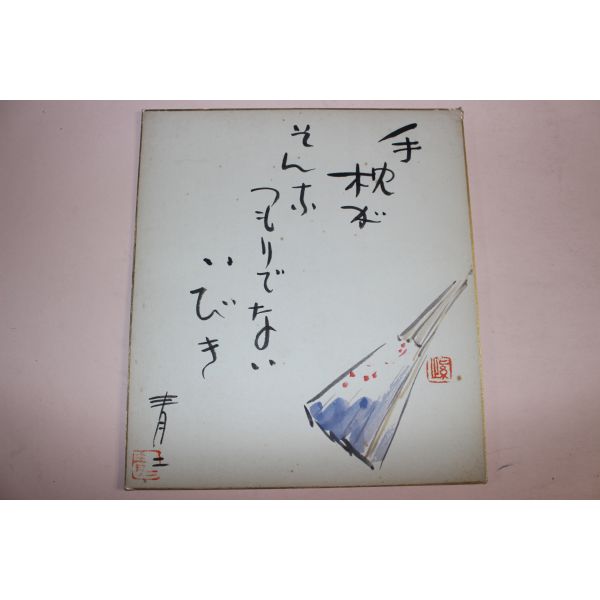 手枕が
そんな
つもりでない
いびき
青土